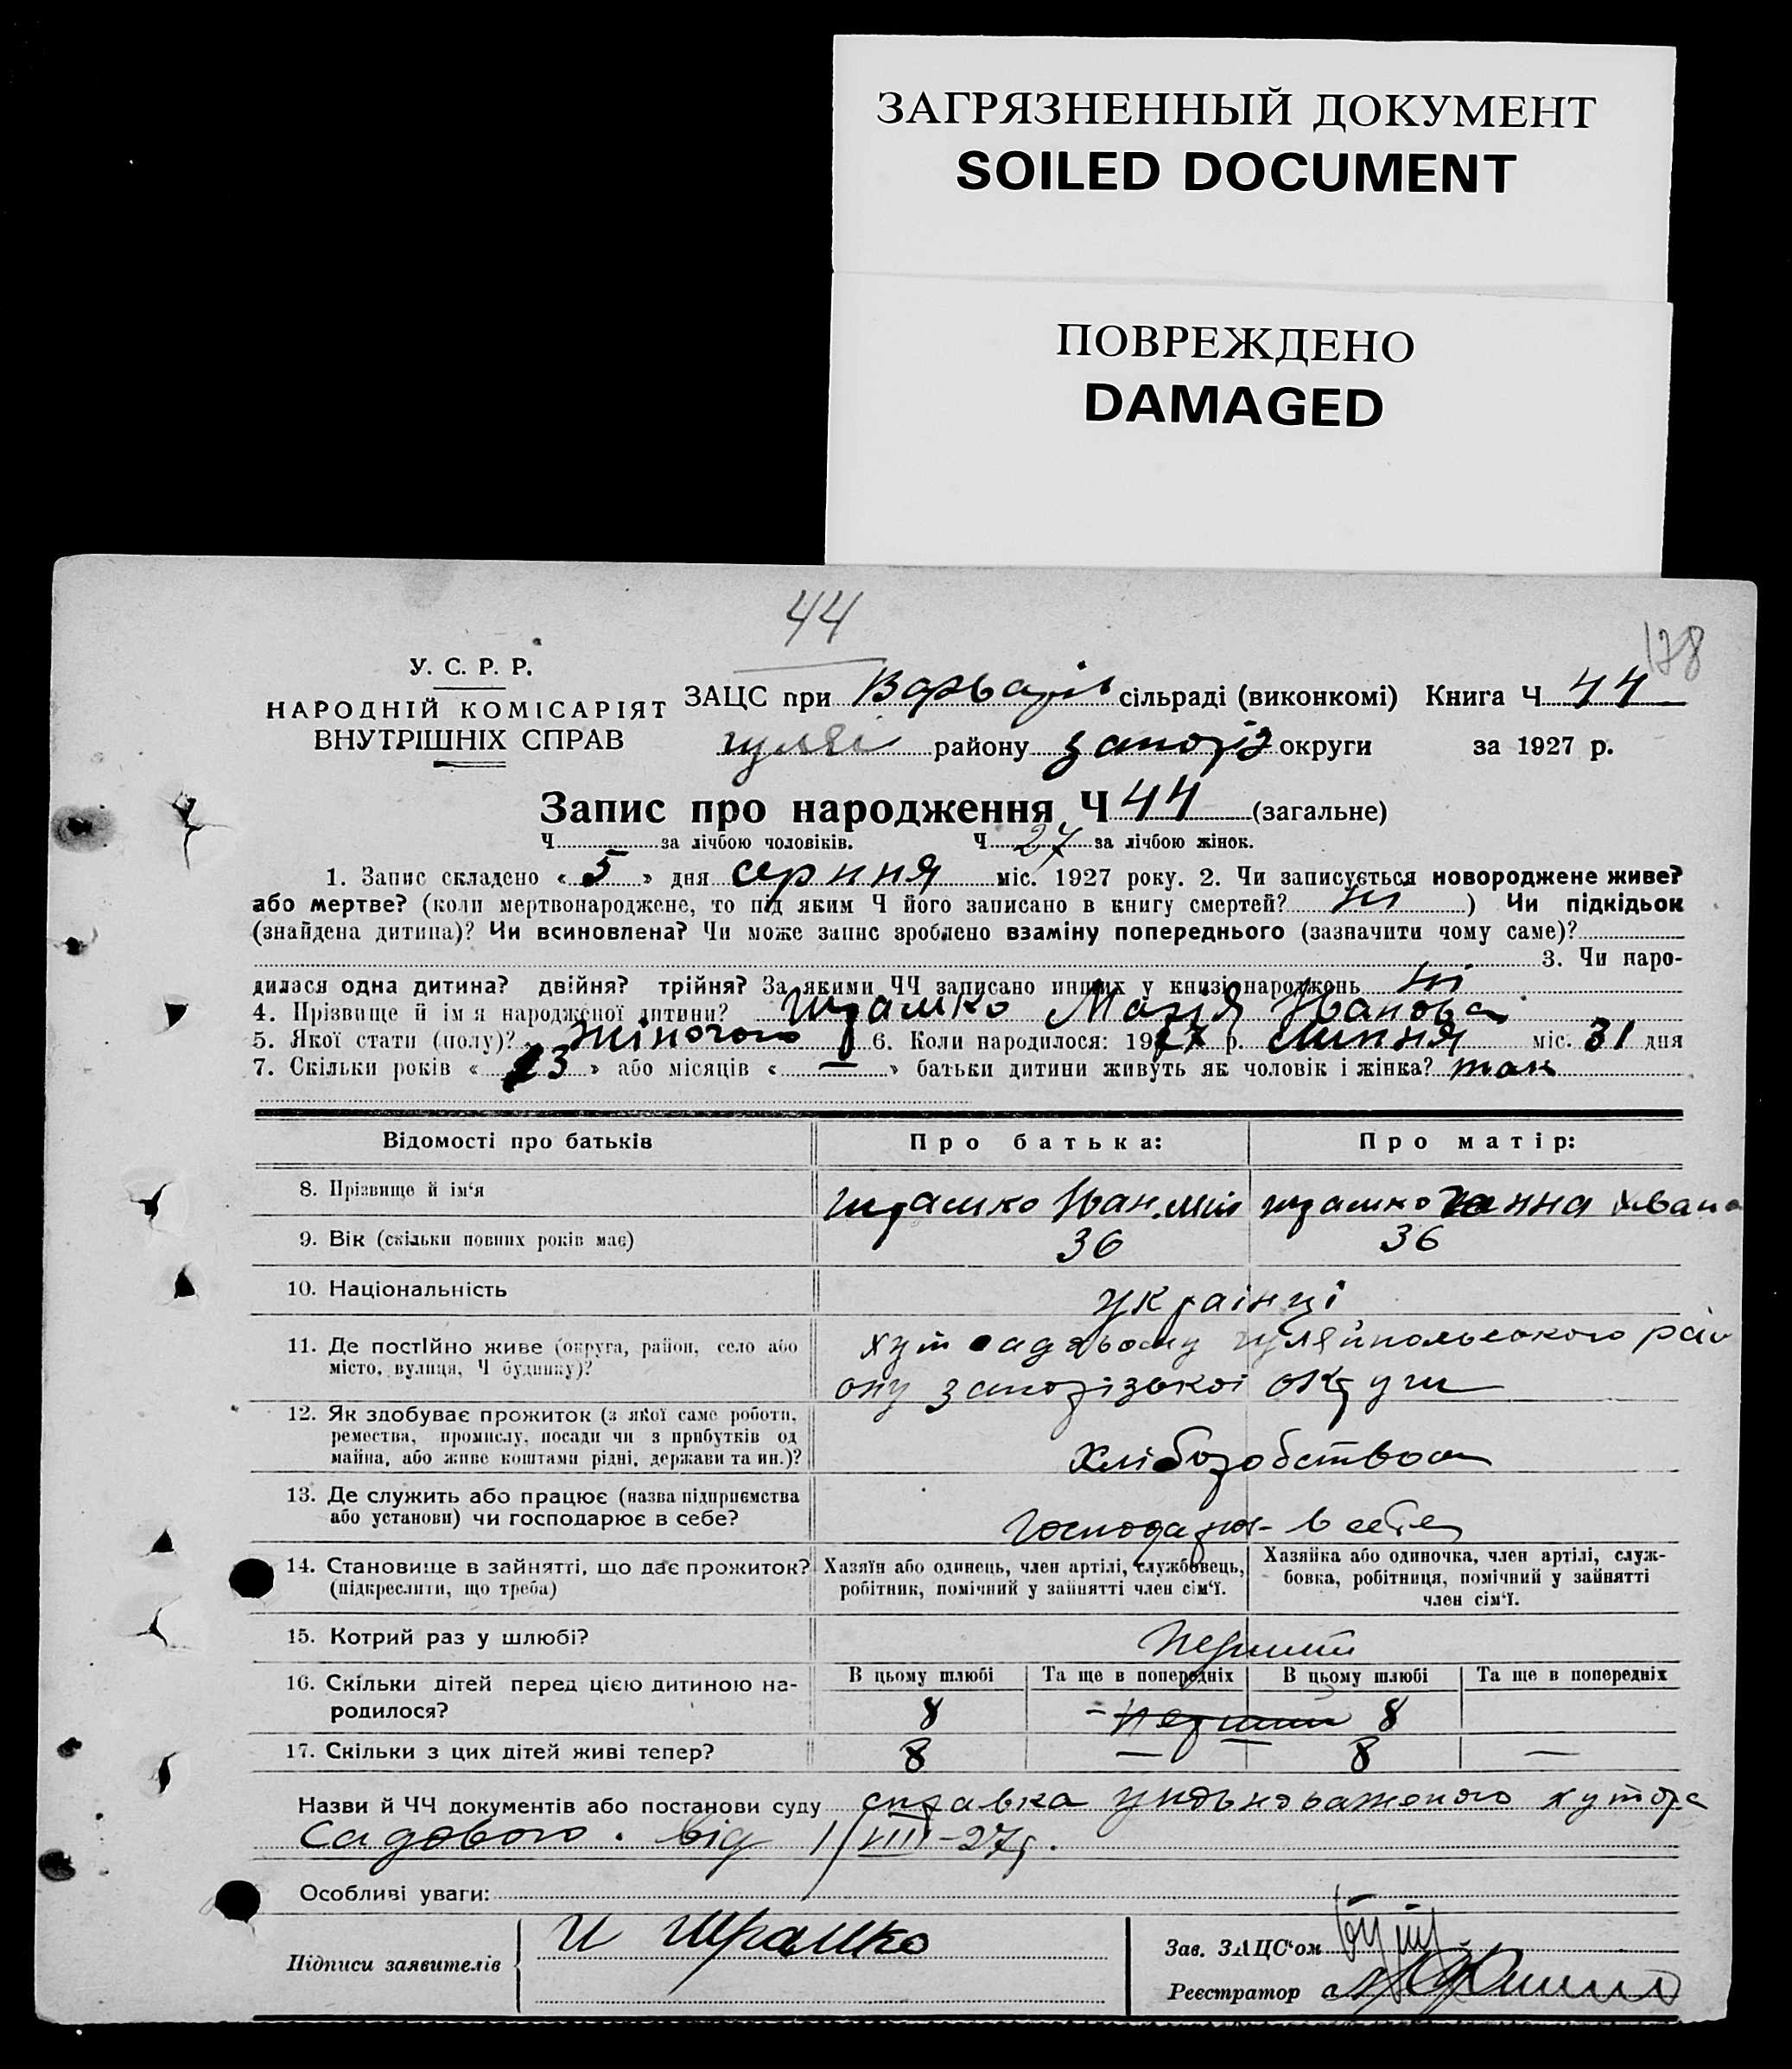 ЗАГРЯЗНЕННЫЙ ДОКУМЕНТ
SOILED DOCUMENT
ПОВРЕЖДЕНО
DAMAGED
44
178
У. С. Р. Р.
НАРОДНІЙ КОМІСАРІЯТ
ВНУТРІШНІХ СПРАВ
ЗАЦС при Варварів сільраді (виконкомі) Книга Ч 44
гуляй району запоріз округи за 1927 р.
Запис про народження Ч 44 (загальне)
Ч за лічбою чоловіків. Ч 27 за лічбою жінок.
1. Запис складено « 5 » дня серпня міс. 1927 року. 2. Чи записується новороджене живе?
або мертве? (коли мертвонароджене, то під яким Ч його записано в книгу смертей? ні ) Чи підкідьок
(знайдена дитина)? Чи всиновлена? Чи може запис зроблено взаміну попереднього (зазначити чому саме)?
3. Чи наро-
дилася одна дитина? двійня? трійня? За якими ЧЧ записано инших у книзі народжень ні
4. Прізвище й ім'я народженої дитини? Шрамко Марія Іванова
5. Якої стати (полу)? жіночого 6. Коли народилося: 1927 р. липня міс. 31 дня
7. Скільки років « 13 » або місяців « — » батьки дитини живуть як чоловік і жінка? так
Відомості про батьків
Про батька:
Про матір:
8. Прізвище й ім'я Шрамко Іван. Шрамко Ганна Івано
9. Вік (скільки повних років має) 36 36
10. Національність українці
11. Де постійно живе (округа, район, село або хут садовому гуляйпольського рай
місто, вулиця, Ч будинку)? ону запорізької округи
12. Як здобуває прожиток (з якої саме роботи,
ремества, промислу, посади чи з прибутків од
майна, або живе коштами рідні, держави та ин.)? Хліборобством
13. Де служить або працює (назва підприємства
або установи) чи господарює в себе? Господарює в себе
14. Становище в зайнятті, що дає прожиток? Хазяїн або одинець, член артілі, службовець, Хазяйка або одиночка, член артілі, служ-
(підкреслити, що треба) робітник, помічний у зайнятті член сім'ї. бовка, робітниця, помічний у зайнятті
член сім'ї.
15. Котрий раз у шлюбі? Перший
В цьому шлюбі Та ще в попередніх В цьому шлюбі Та ще в попередніх
16. Скільки дітей перед цією дитиною на-
родилося? 8 – перший 8
17. Скільки з цих дітей живі тепер? 8 — — 8 —
Назви й ЧЧ документів або постанови суду справка уповноваженого хутора
Садового. від 1/VIII-27р.
Особливі уваги:
Підписи заявителів И Шрамко
Зав. ЗАЦС'ом
Реєстратор